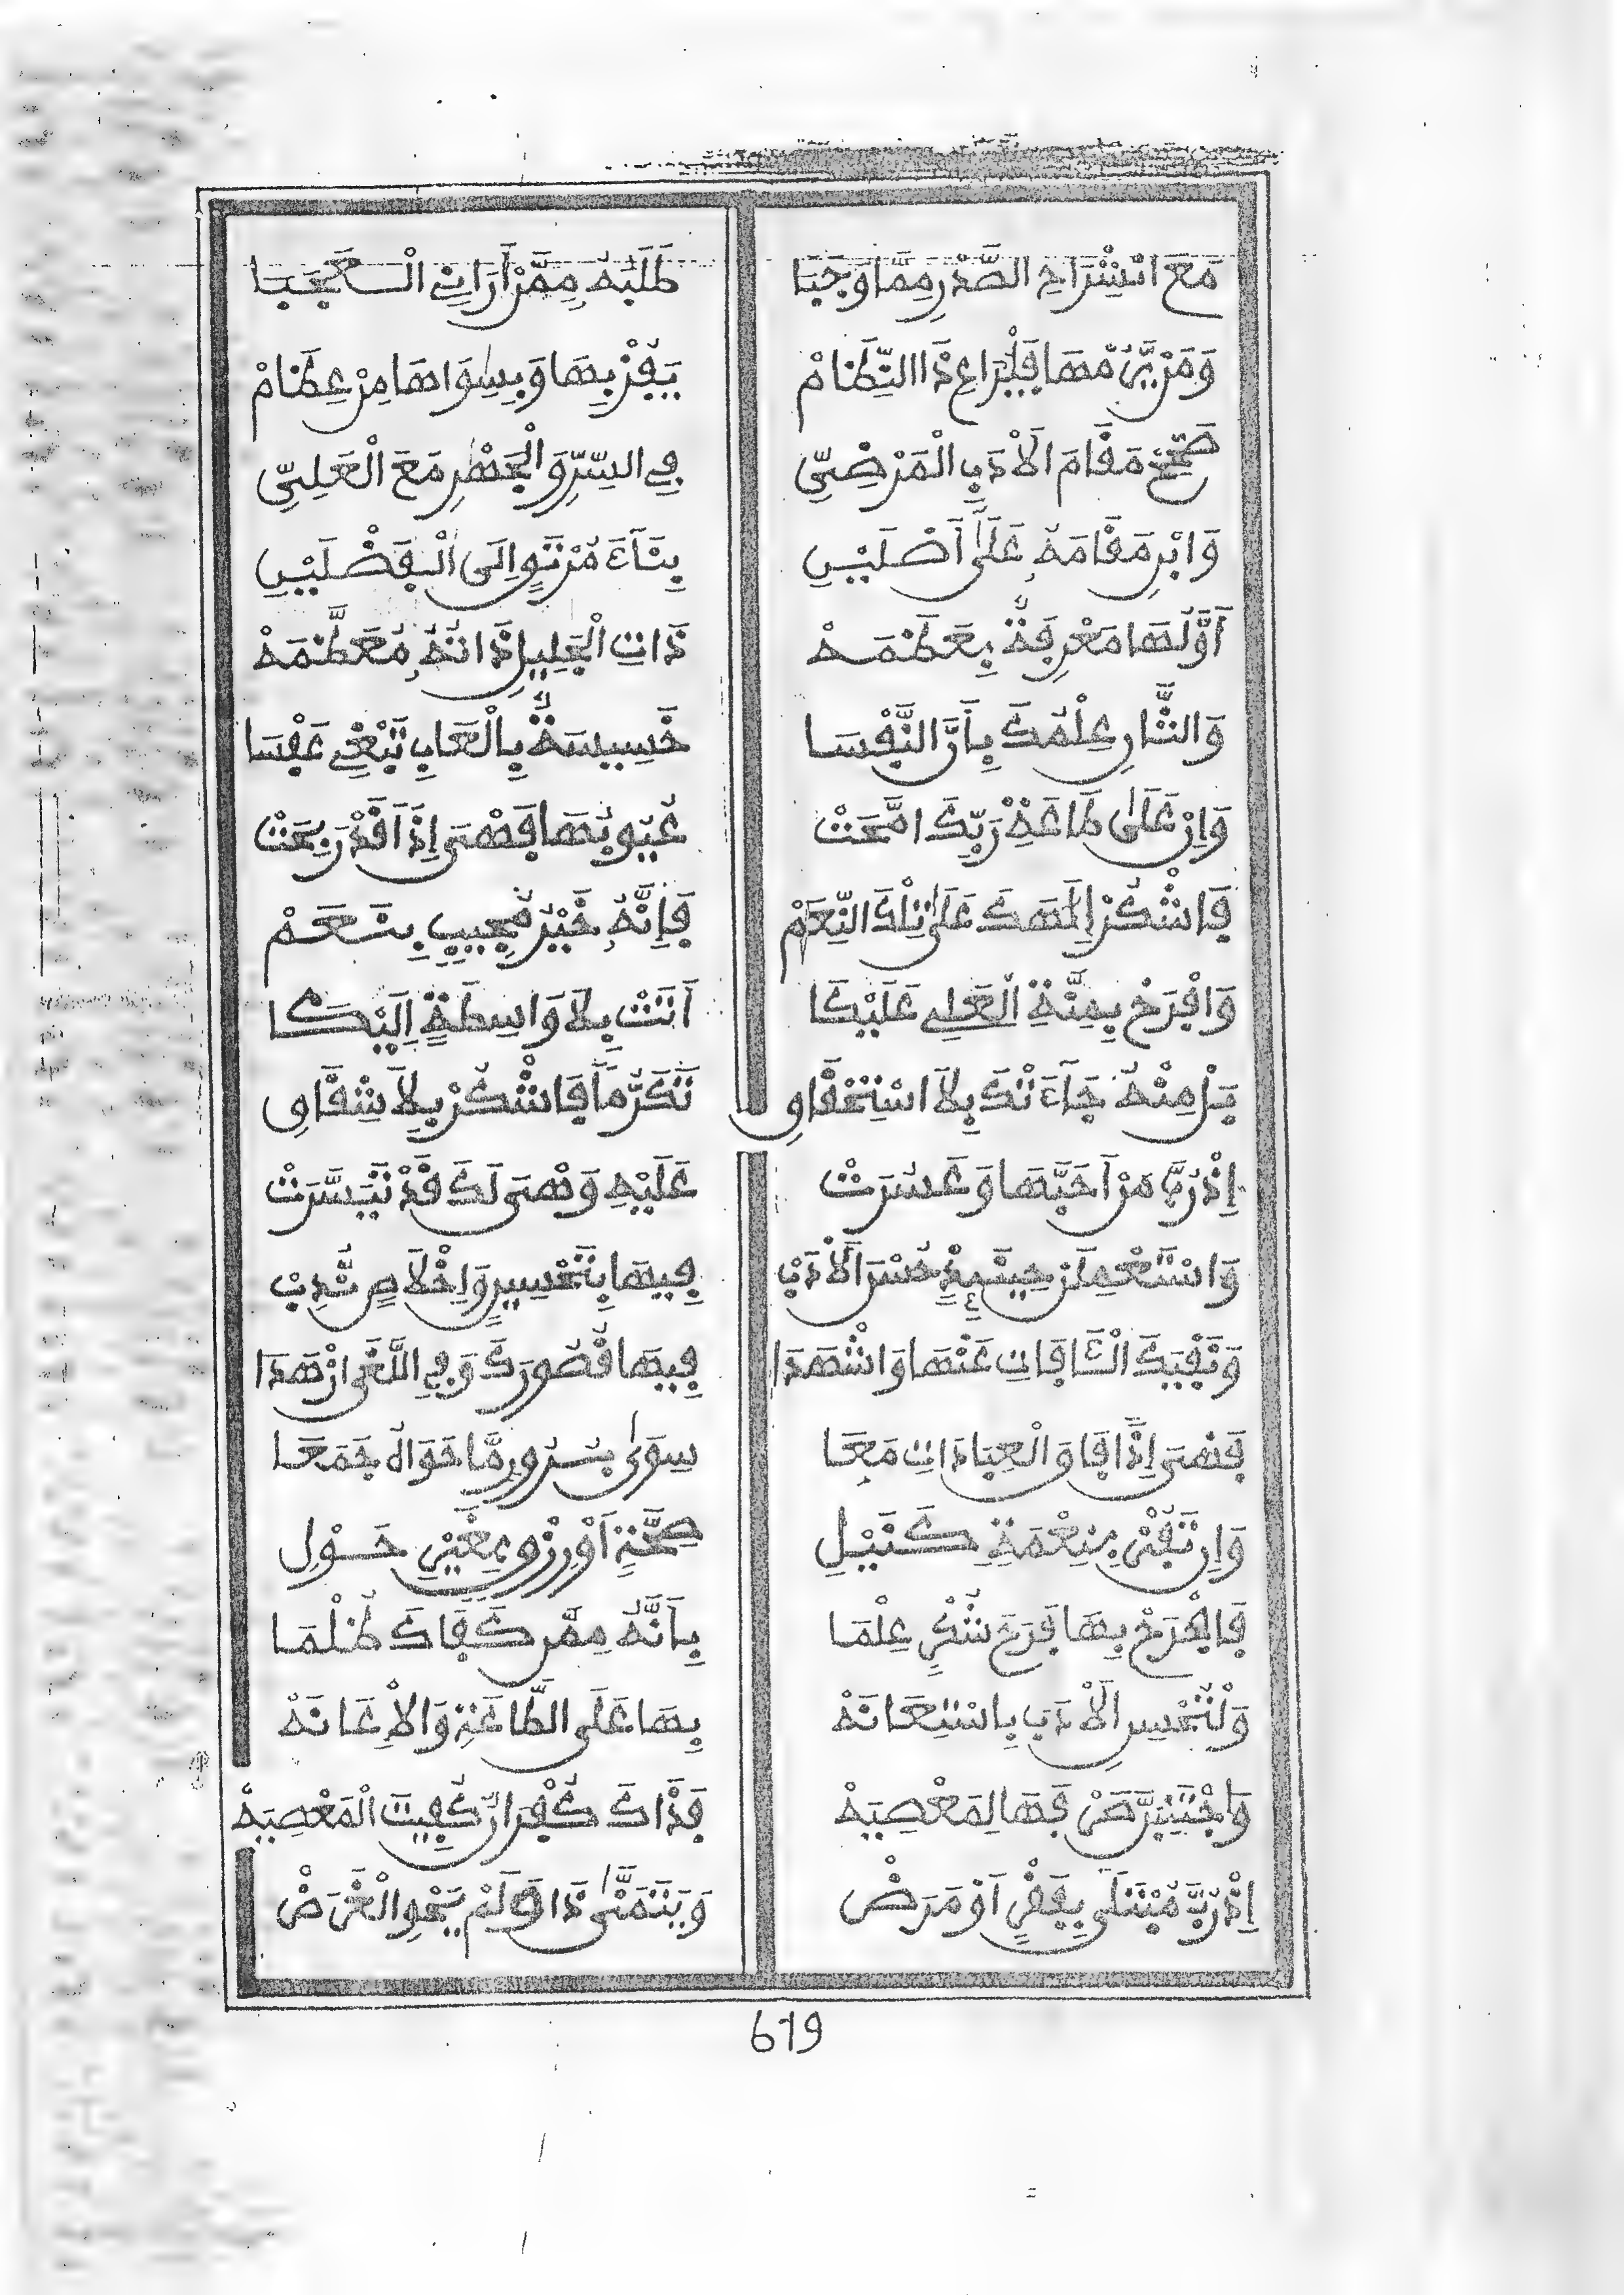 مَعَ انْشِرَاحِ الصَّدْرِ مِمَّا وَجَبَا طَلَبُهُ مِمَّنْ أَرَانِي الْعَجَبَا
وَمَنْ يَرُمْهَا فَلْيُرَاعِ ذَا النِّظَامْ يَفُزْ بِهَا وَبِسِوَاهَا مِنْ عِظَامْ
صَحِّحْ مَقَامَ الْأَدَبِ الْمَرْضِيِّ فِي السِّرِّ وَالْجَهْرِ مَعَ الْعَلِيِّ
وَابْنِ مَقَامَهُ عَلَى أَصْلَيْنِ بِنَاءَ مُرْتَوٍ إِلَى الْفَضْلَيْنِ
أَوَّلُهَا مَعْرِفَةٌ بِعَظَمَهْ ذَاتِ الْجَلِيلِ ذَاتُهُ مُعَظَّمَهْ
وَالثَّانِ عِلْمُكَ بِأَنَّ النَّفْسَا خَسِيسَةٌ بِالْعَابِ تَبْغِي عَفْسَا
وَإِنْ عَلَى طَاعَةِ رَبِّكَ امَّحَتْ عُيُوبُهَا فَهْيَ إِذًا قَدْ رَبِحَتْ
فَاشْكُرْ إِلَهَكَ عَلَى تِلْكَ النِّعَمْ فَإِنَّهُ خَيْرُ مُجِيبٍ بِنَعَمْ
وَافْرَحْ بِمِنَّةِ الْعَلِي عَلَيْكَا أَتَتْ بِلَا وَاسِطَةٍ إِلَيْكَا
بَلْ مِنْهُ جَاءَتْكَ بِلَا اسْتِحْقَاقِ تَكَرُّمًا فَاشْكُرْ بِلَا شِقَاقِ
إِذْ رُبَّ مَنْ أَحَبَّهَا وَعَسُرَتْ عَلَيْهِ وَهْيَ لَكَ قَدْ تَيَسَّرَتْ
وَاسْتَعْمِلَنْ حِينَئِذٍ حُسْنَ الْأَدَبْ فِيهَا بِتَحْسِينٍ وَإِخْلَاصٍ تُدِبْ
وَنَفْيِكَ الْآفَاتِ عَنْهَا وَاشْهَدَا فِيهَا قُصُورَكَ وَفِي اللَّغَى ازْهَدَا
فَهْيَ إِذًا فَاقَ الْعِبَادَاتِ مَعَا سِوَى بُرُورِ مَا حَوَاهُ جَمَعَا
وَإِنْ تَفُقْ بِنِعْمَةٍ كَنَيْلِ صِحَّةٍ أَوْ رِزْقٍ بِغَيْرِ حَوْلِ
فَافْرَحْ بِهَا فَرَحَ شُكْرٍ عِلْمَا بِأَنَّهُ مِمَّنْ كَفَاكَ ظُلْمَا
وَلْتُحْسِنِ الْأَدَبَ بِاسْتِعَانَهْ بِهَا عَلَى الطَّاعَةِ وَالْإِعَانَهْ
وَاجْتَنِبْ صَرْفَهَا لِمَعْصِيَهْ فَذَاكَ كُفْرَانٌ كُفِيتَ الْمَعْصِيَهْ
إِذْ رُبَّ مُبْتَلًى بِفَقْرٍ أَوْ مَرَضْ وَيَتَمَنَّى ذَا وَلَمْ يَحْوِ الْغَرَضْ
619